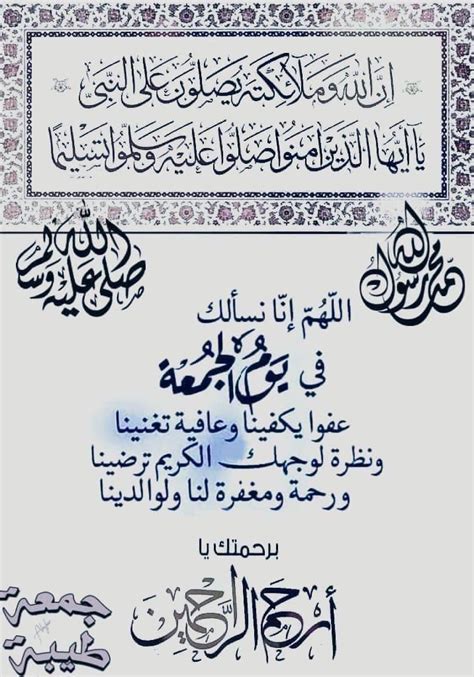 إن الله وملائكته يصلون على النبي
يا أيها الذين آمنوا صلوا عليه وسلموا تسليما
محمد رسول الله
صلى الله عليه وسلم
اللهم إنا نسألك
في يوم الجمعة
عفوا يكفينا وعافية تغنينا
ونظرة لوجهك الكريم ترضينا
ورحمة ومغفرة لنا ولوالدينا
برحمتك يا
أرحم الراحمين
جمعة
طيبة